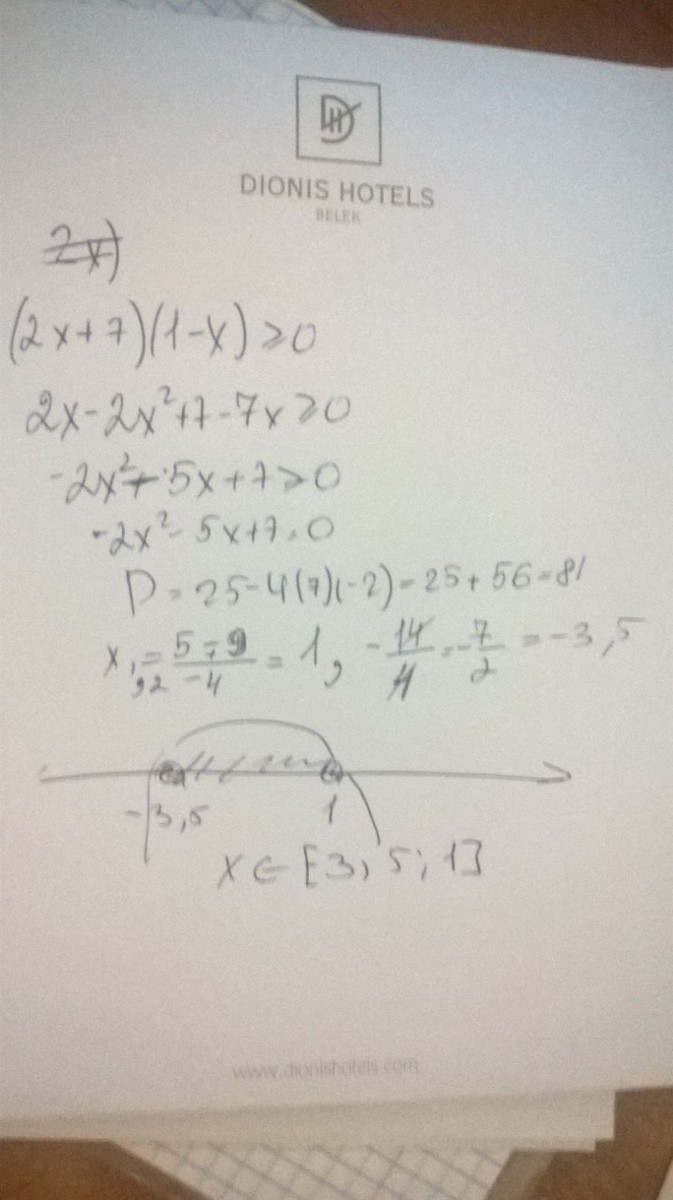 DH
DIONIS HOTELS
BELEK
2x)
(2x+7)(1-x)⩾0
2x-2x²+7-7x⩾0
-2x²-5x+7⩾0
-2x²-5x+7=0
D=25-4(7)(-2)=25+56=81
x₁,₂=(5±9)/-4=1, -14/4=-7/2=-3,5
-3,5 1
x∈[3,5;1]
www.dionishotels.com